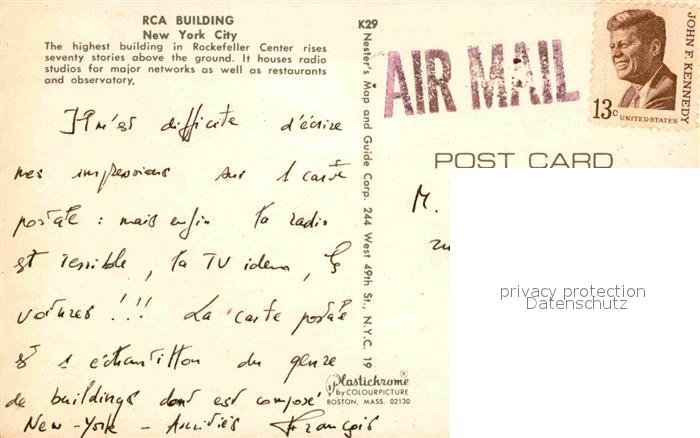 RCA BUILDING
New York City
The highest building in Rockefeller Center rises
seventy stories above the ground. It houses radio
studios for major networks as well as restaurants
and observatory.
Il m'est difficile d'écrire
mes impressions sur 1 carte
postale : mais enfin la radio
est terrible, la TV idem, les
voitures !!! La carte postale
est 1 échantillon du genre
de buildings dont est composé
New-York - Amitiés François
K29
Nester's Map and Guide Corp. 244 West 49th St., N.Y.C. 19
Plastichrome ®
by COLOURPICTURE
BOSTON, MASS. 02130
AIR MAIL
JOHN F. KENNEDY
13c
UNITED STATES
POST CARD
M.
privacy protection
Datenschutz